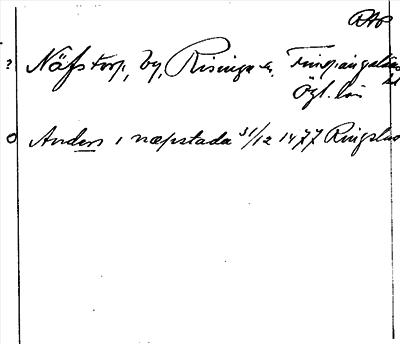 ? Näfstorp, by, Risinge sn, Finspångaläns
Ögl. län
o Anders i næpstada 31/12 1477 Ringstad